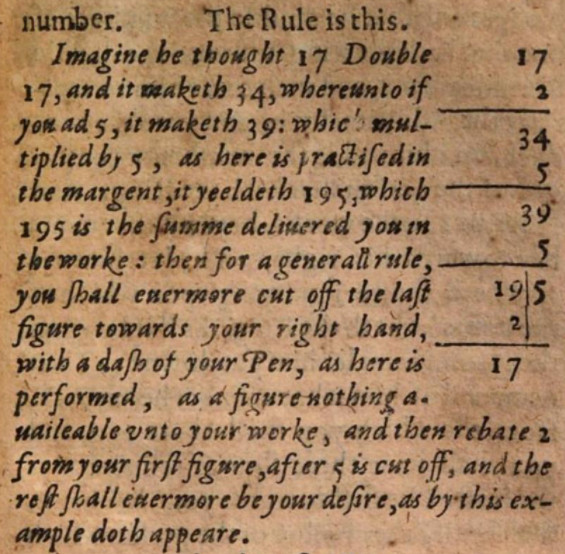 number. The Rule is this.
Imagine he thought 17 Double
17, and it maketh 34, whereunto if
you ad 5, it maketh 39: which mul-
tiplied by 5, as here is practiſed in
the margent, it yeeldeth 195, which
195 is the ſumme deliuered you in
the worke: then for a generall rule,
you ſhall euermore cut off the laſt
figure towards your right hand,
with a daſh of your Pen, as here is
performed, as a figure nothing a-
uaileable vnto your worke, and then rebate 2
from your firſt figure, after 5 is cut off, and the
reſt ſhall euermore be your deſire, as by this ex-
ample doth appeare.
17
2
34
5
39
5
19|5
2
17